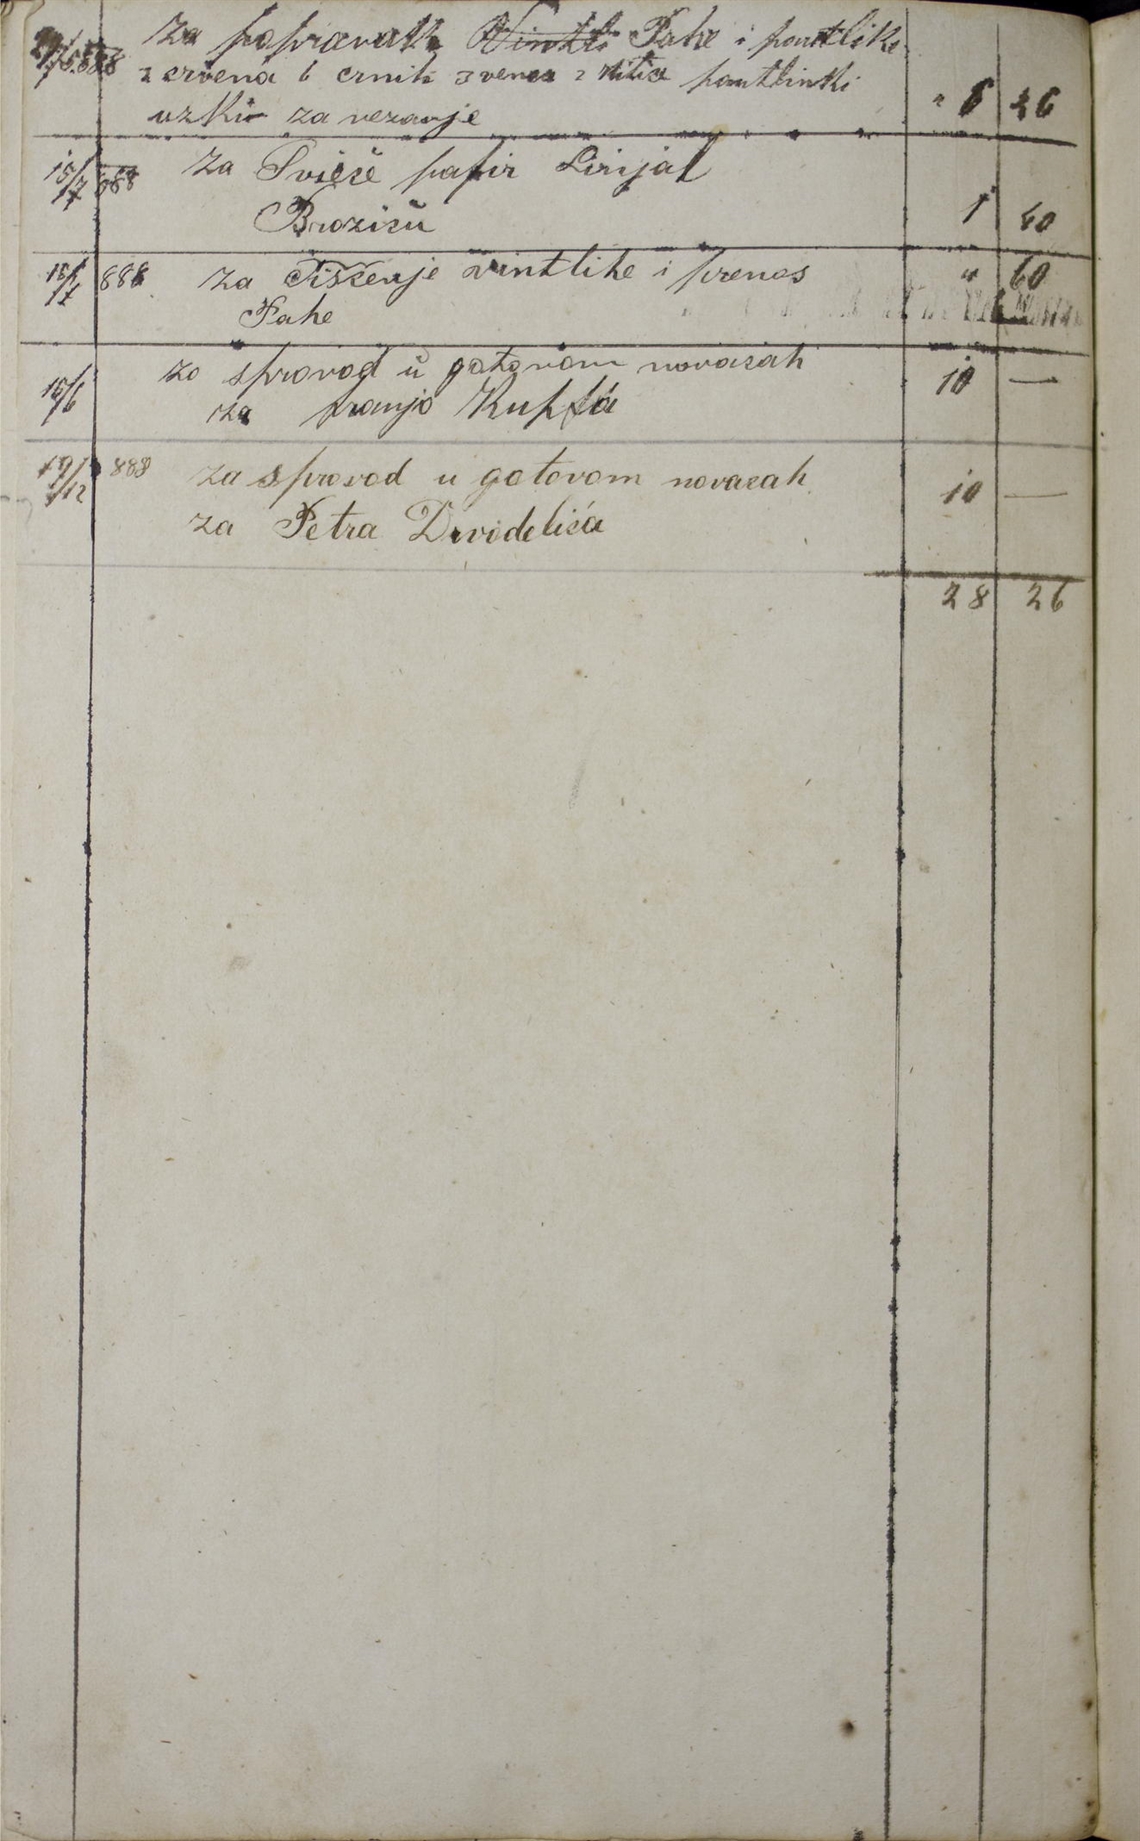 za popravak Vinkli Pahe i pantlike
2 crvena 6 crnih 3 venca 2 kitice pantlinki
uzkih za vezanje " 6 26
15/7 888 za Svieče papir Linijal
Broziću 1 40
15/7 888 za Tiščenje vintlike i prenos " 60
Pahe
15/6 za sprovod u gotovom novacah 10 —
za franjo Kupfa
19/12 888 za sprovod u gotovom novacah 10 —
za Petra Drvodelića
28 26